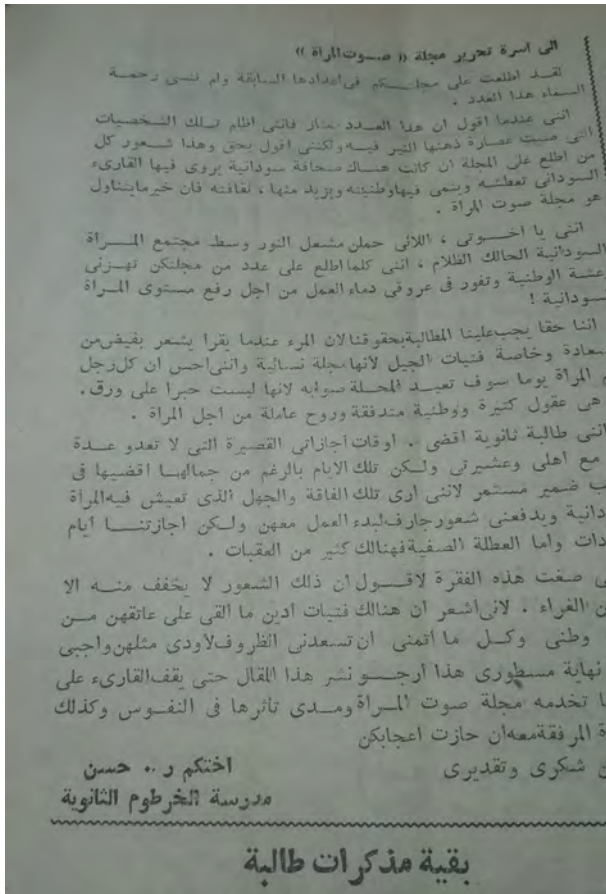 الى اسرة تحرير مجلة « صوت المراة »
لقد اطلعت على مجلتكم فى اعدادها السابقة ولم تنسى رحمة
السماء هذا العدد .
اننى عندما اقول ان هذا العدد ممتاز فاننى اظلم تلك الشخصيات
التى صبت عصارة ذهنها النير فيه ولكننى اقول بحق وهذا شعور كل
من اطلع على المجلة ان كانت هناك صحافة سودانية يروى فيها القارىء
السودانى تعطشه وينمى فيها وطنيته ويزيد منها ، ثقافته فان خير ما يتناول
هو مجلة صوت المراة .
اننى يا اخوتى ، اللائى حملن مشعل النور وسط مجتمع المراة
السودانية الحالك الظلام ، اننى كلما اطلع على عدد من مجلتكن تهزنى
عشة الوطنية وتفور فى عروقى دماء العمل من اجل رفع مستوى المراة
سودانية !
اننا حقا يجب علينا المطالبة بحقوقنا لان المرء عندما يقرا يشعر بفيض من
سعادة وخاصة فتيات الجيل لانها مجلة نسائية واننى احس ان كل رجل
المراة يوما سوف تعيد المجلة صوابه لانها ليست حبرا على ورق .
هى عقول كثيرة ووطنية متدفقة وروح عاملة من اجل المراة .
اننى طالبة ثانوية اقضى .. اوقات اجازاتى القصيرة التى لا تعدو عدة
مع اهلى وعشيرتى ولكن تلك الايام بالرغم من جمالها اقضيها فى
ضمير مستمر لاننى ارى تلك الفاقة والجهل الذى تعيش فيه المراة
دانية ويدفعنى شعور جارف لبدء العمل معهن ولكن اجازتنا ايام
دات واما العطلة الصفية فهنالك كثير من العقبات .
صغت هذه الفقرة لاقول ان ذلك الشعور لا يخفف منه الا
الغراء . لانى اشعر ان هنالك فتيات ادين ما القى على عاتقهن من
وطنى وكل ما اتمنى ان تسعدنى الظروف لاودى مثلهن واجبى
نهاية مسطورى هذا ارجو نشر هذا المقال حتى يقف القارىء على
ا تخدمه مجلة صوت المراة ومدى تاثرها فى النفوس وكذلك
ة المرفقة معه ان حازت اعجابكن
شكرى وتقديرى
اختكم ر .. حسن
مدرسة الخرطوم الثانوية
بقية مذكرات طالبة